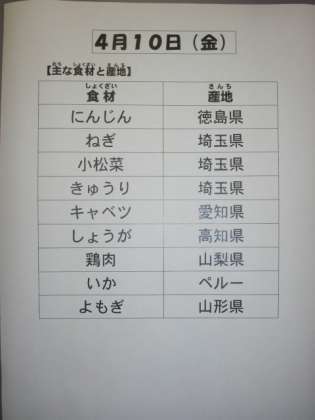 4月10日（金）
【主な食材と産地】
食材 産地
にんじん 徳島県
ねぎ 埼玉県
小松菜 埼玉県
きゅうり 埼玉県
キャベツ 愛知県
しょうが 高知県
鶏肉 山梨県
いか ペルー
よもぎ 山形県